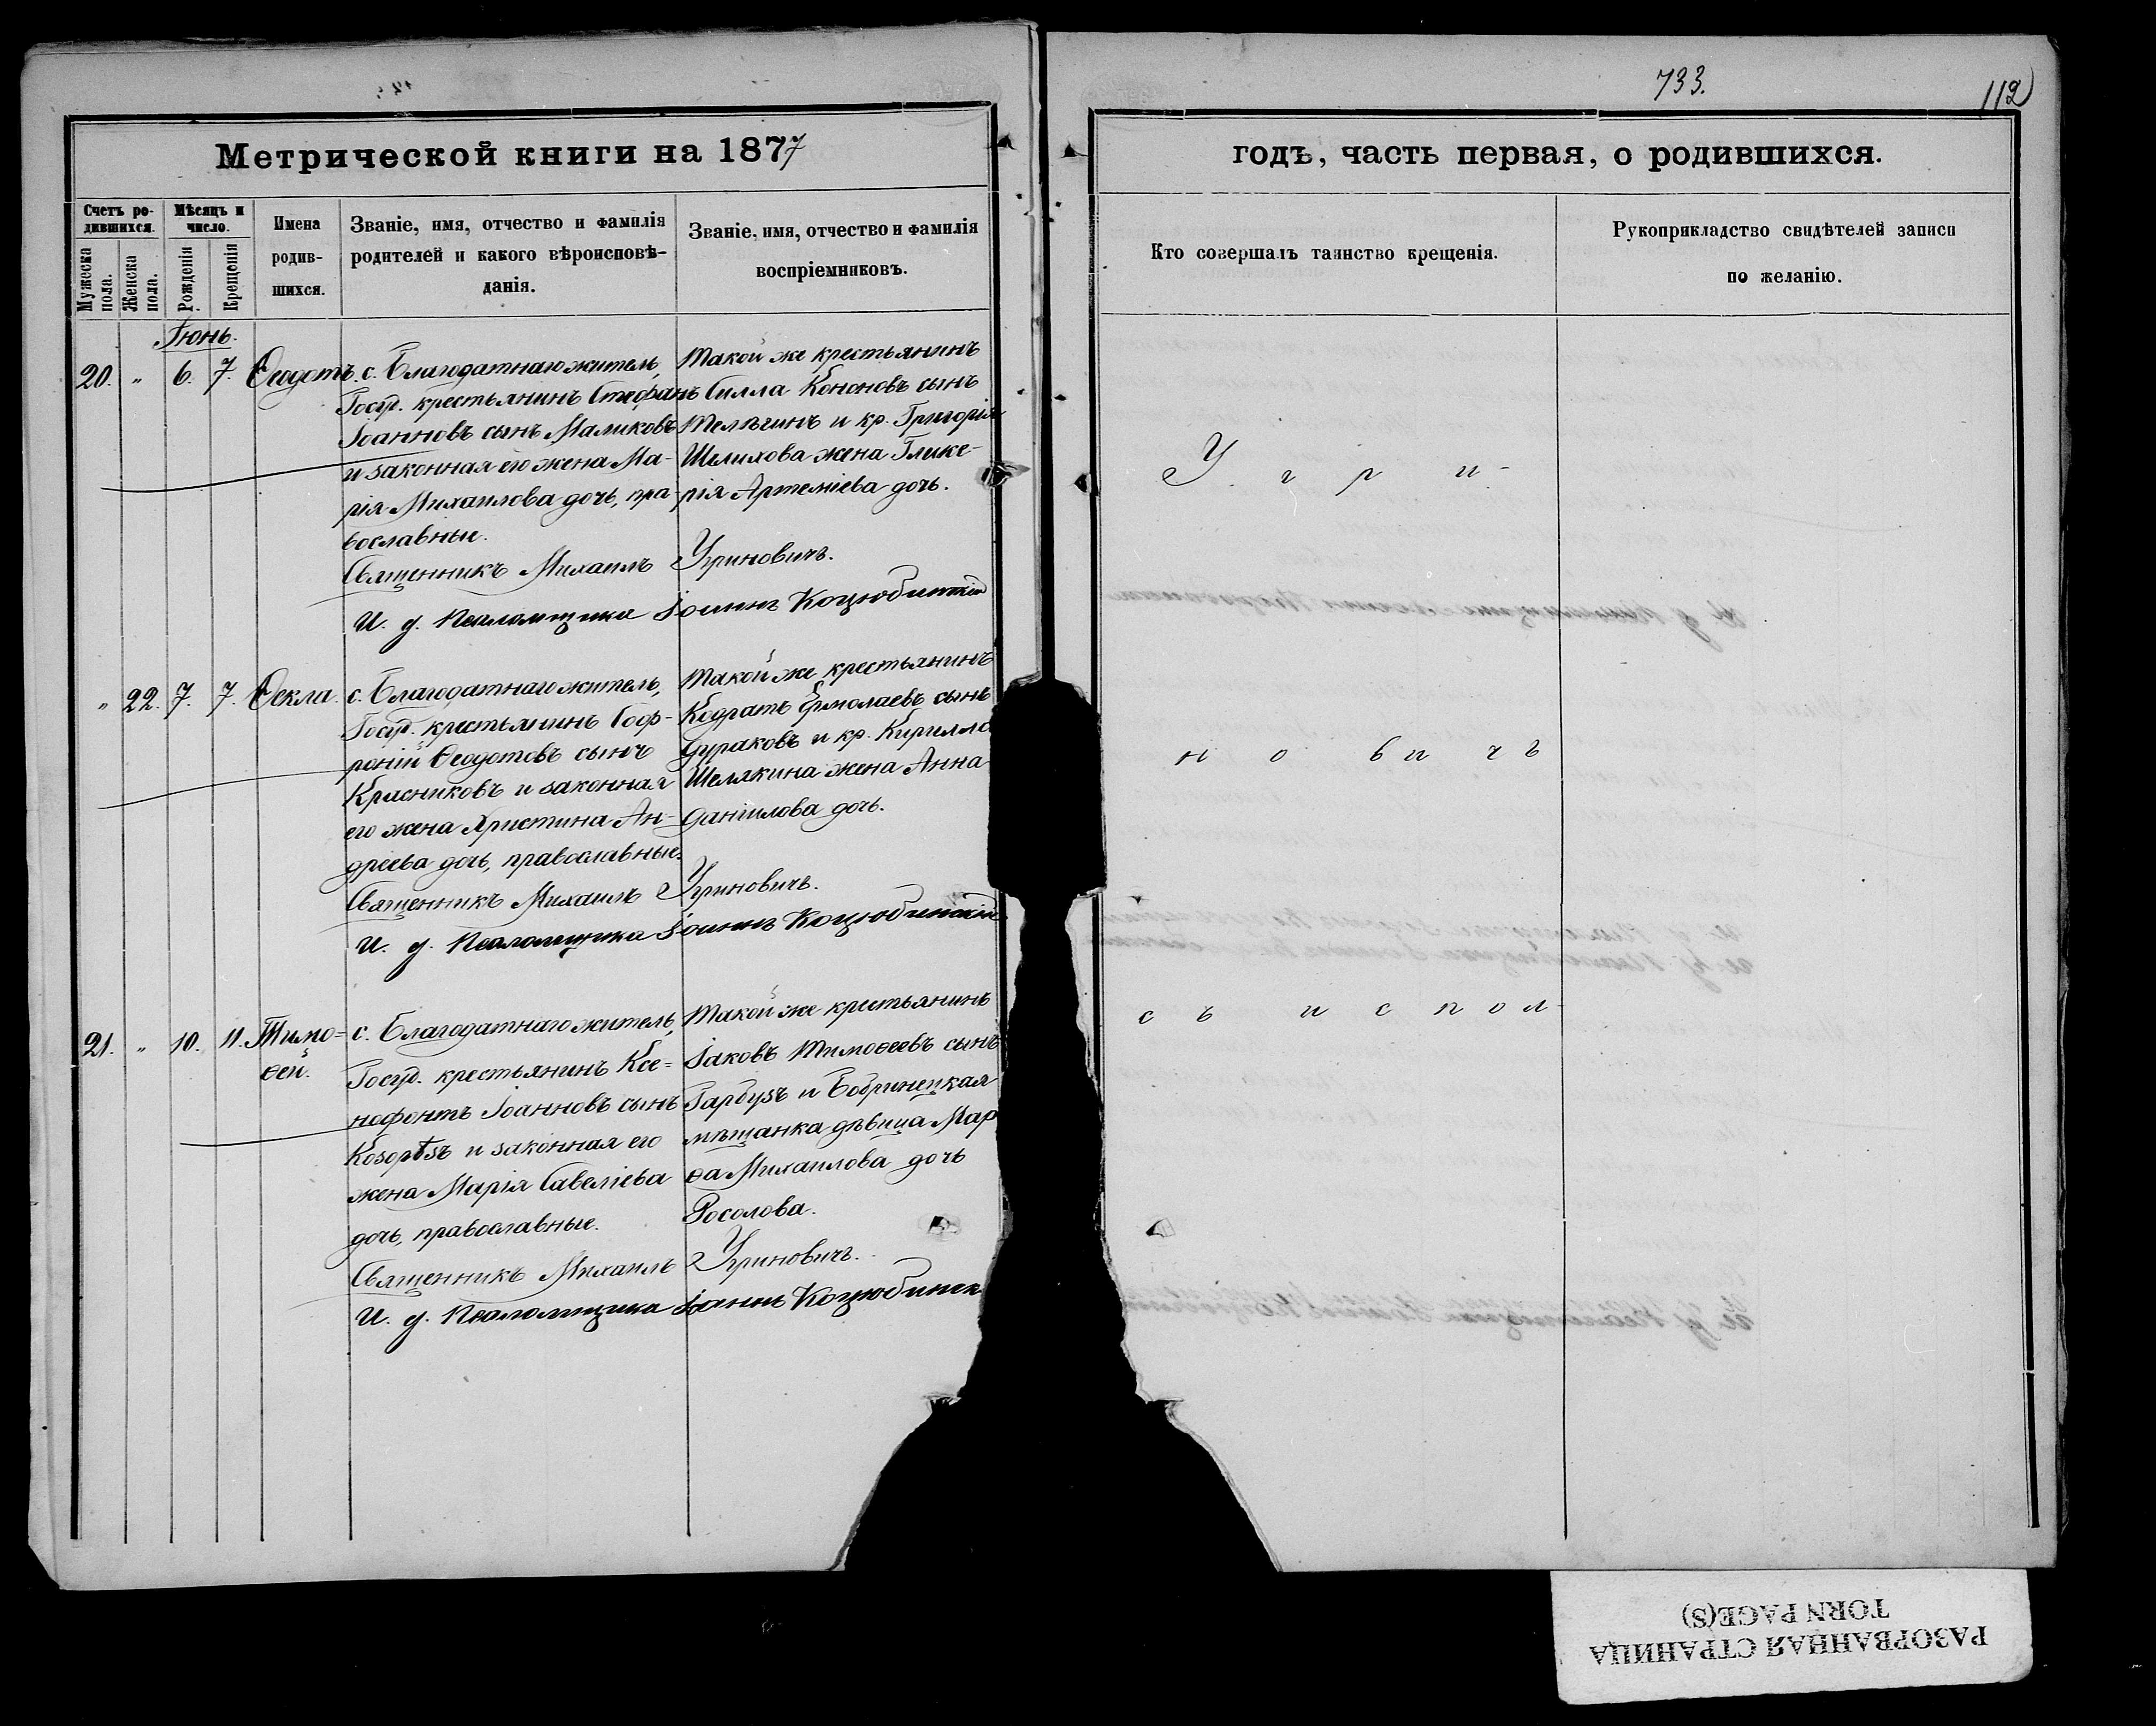 733.
112
Метрической книги на 1877
годъ, часть первая, о родившихся.
Счетъ ро-
дившихся.
Мужеска
пола.
Женска
пола.
Мѣсяцъ и
число.
Рожденія
Крещенія
Имена
родив-
шихся.
Званіе, имя, отчество и фамилія
родителей и какого вѣроисповѣ-
данія.
Званіе, имя, отчество и фамилія
воспріемниковъ.
Кто совершалъ таинство крещенія.
Рукоприкладство свидѣтелей записи
по желанію.
Іюнь.
20. „ 6. 7. Ѳеодотъ.
с. Благодатнаго житель,
Госуд. крестьянинъ Стефанъ
Іоанновъ сынъ Маликовъ
и законная его жена Ма-
рія Михаилова дочь, пра-
вославные.
Такой же крестьянинъ
Силла Кононовъ сынъ
Телѣгинъ и кр. Григорія
Шелихова жена Глике-
рія Артеміева дочь.
Священникъ Михаилъ Угриновичъ.
И. д. Псаломщика Іоаннъ Коцюбинскій
У г р и-
„ 22. 7. 7. Ѳекла.
с. Благодатнаго житель,
Госуд. крестьянинъ Соф-
роній Ѳеодотовъ сынъ
Красниковъ и законная
его жена Христина Ан-
дреева дочь, православные.
Такой же крестьянинъ
Кодратъ Ермолаевъ сынъ
Дураковъ и кр. Кирилла
Шелякина жена Анна
Даніилова дочь.
Священникъ Михаилъ Угриновичъ.
И. д. Псаломщика Іоаннъ Коцюбинскій
н о в и ч ъ
21. „ 10. 11. Тимо=
ѳей.
с. Благодатнаго житель,
Госуд. крестьянинъ Ксе=
нофонтъ Іоанновъ сынъ
Козорѣзъ и законная его
жена Марія Савеліева
дочь, православные.
Такой же крестьянинъ
Іаковъ Тимоѳеевъ сынъ
Гарбузъ и Бобринецкая
мѣщанка дѣвица Мар
ѳа Михаилова дочь
Росолова.
Священникъ Михаилъ Угриновичъ.
И. д. Псаломщика Іоаннъ Коцюбинск
с ъ и с п о л-
РАЗОРВАННАЯ СТРАНИЦА
TORN PAGE(S)